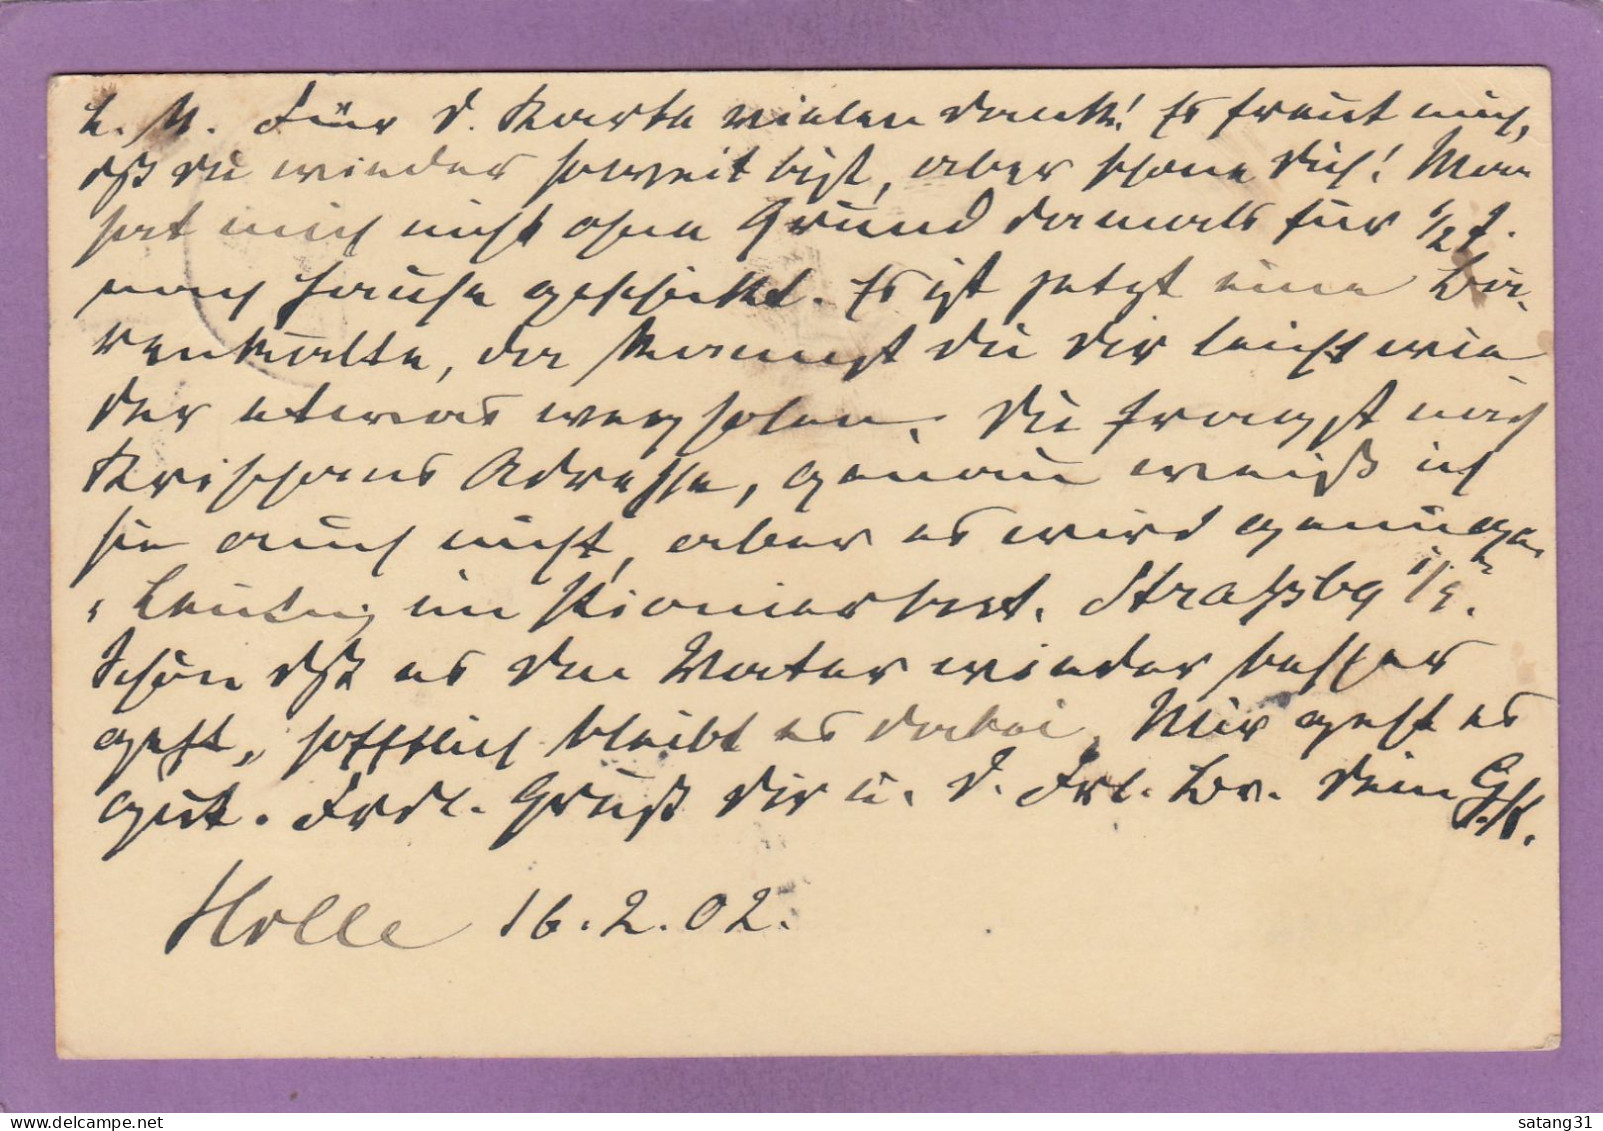 L. M. Für d. Karte vielen Dank! Es freut mich,
dß Du wieder soweit bist, aber schone Dich! Man
hat mich nicht ohne Grund damals für 1/2 J.
nach Hause geschickt. Es ist jetzt eine Bä-
renkälte, da kannst Du Dir leicht wie-
der etwas wegholen. Du fragst nach
Krischans Adresse, genau weiß ich
sie auch nicht, aber es wird genügen
im Pionierbat. Straßbg
Schön dß es dem Vater wieder besser
geht, hofftlich bleibt es dabei. Mir geht es
gut. Frdl. Gruß Dir u. d. Frl. Br. Dein
Holle 16.2.02.
satang31